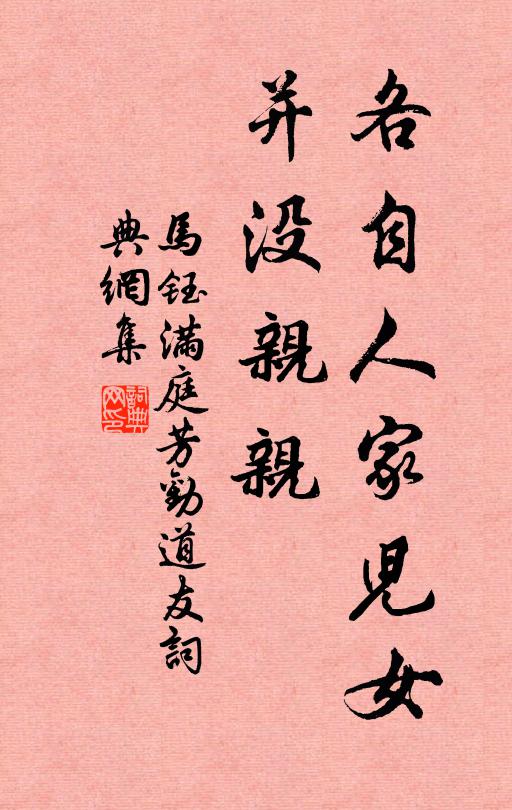 各自人家児女
并没親親
馬鈺满庭芳勸道友詞
典網集
詞典
网印